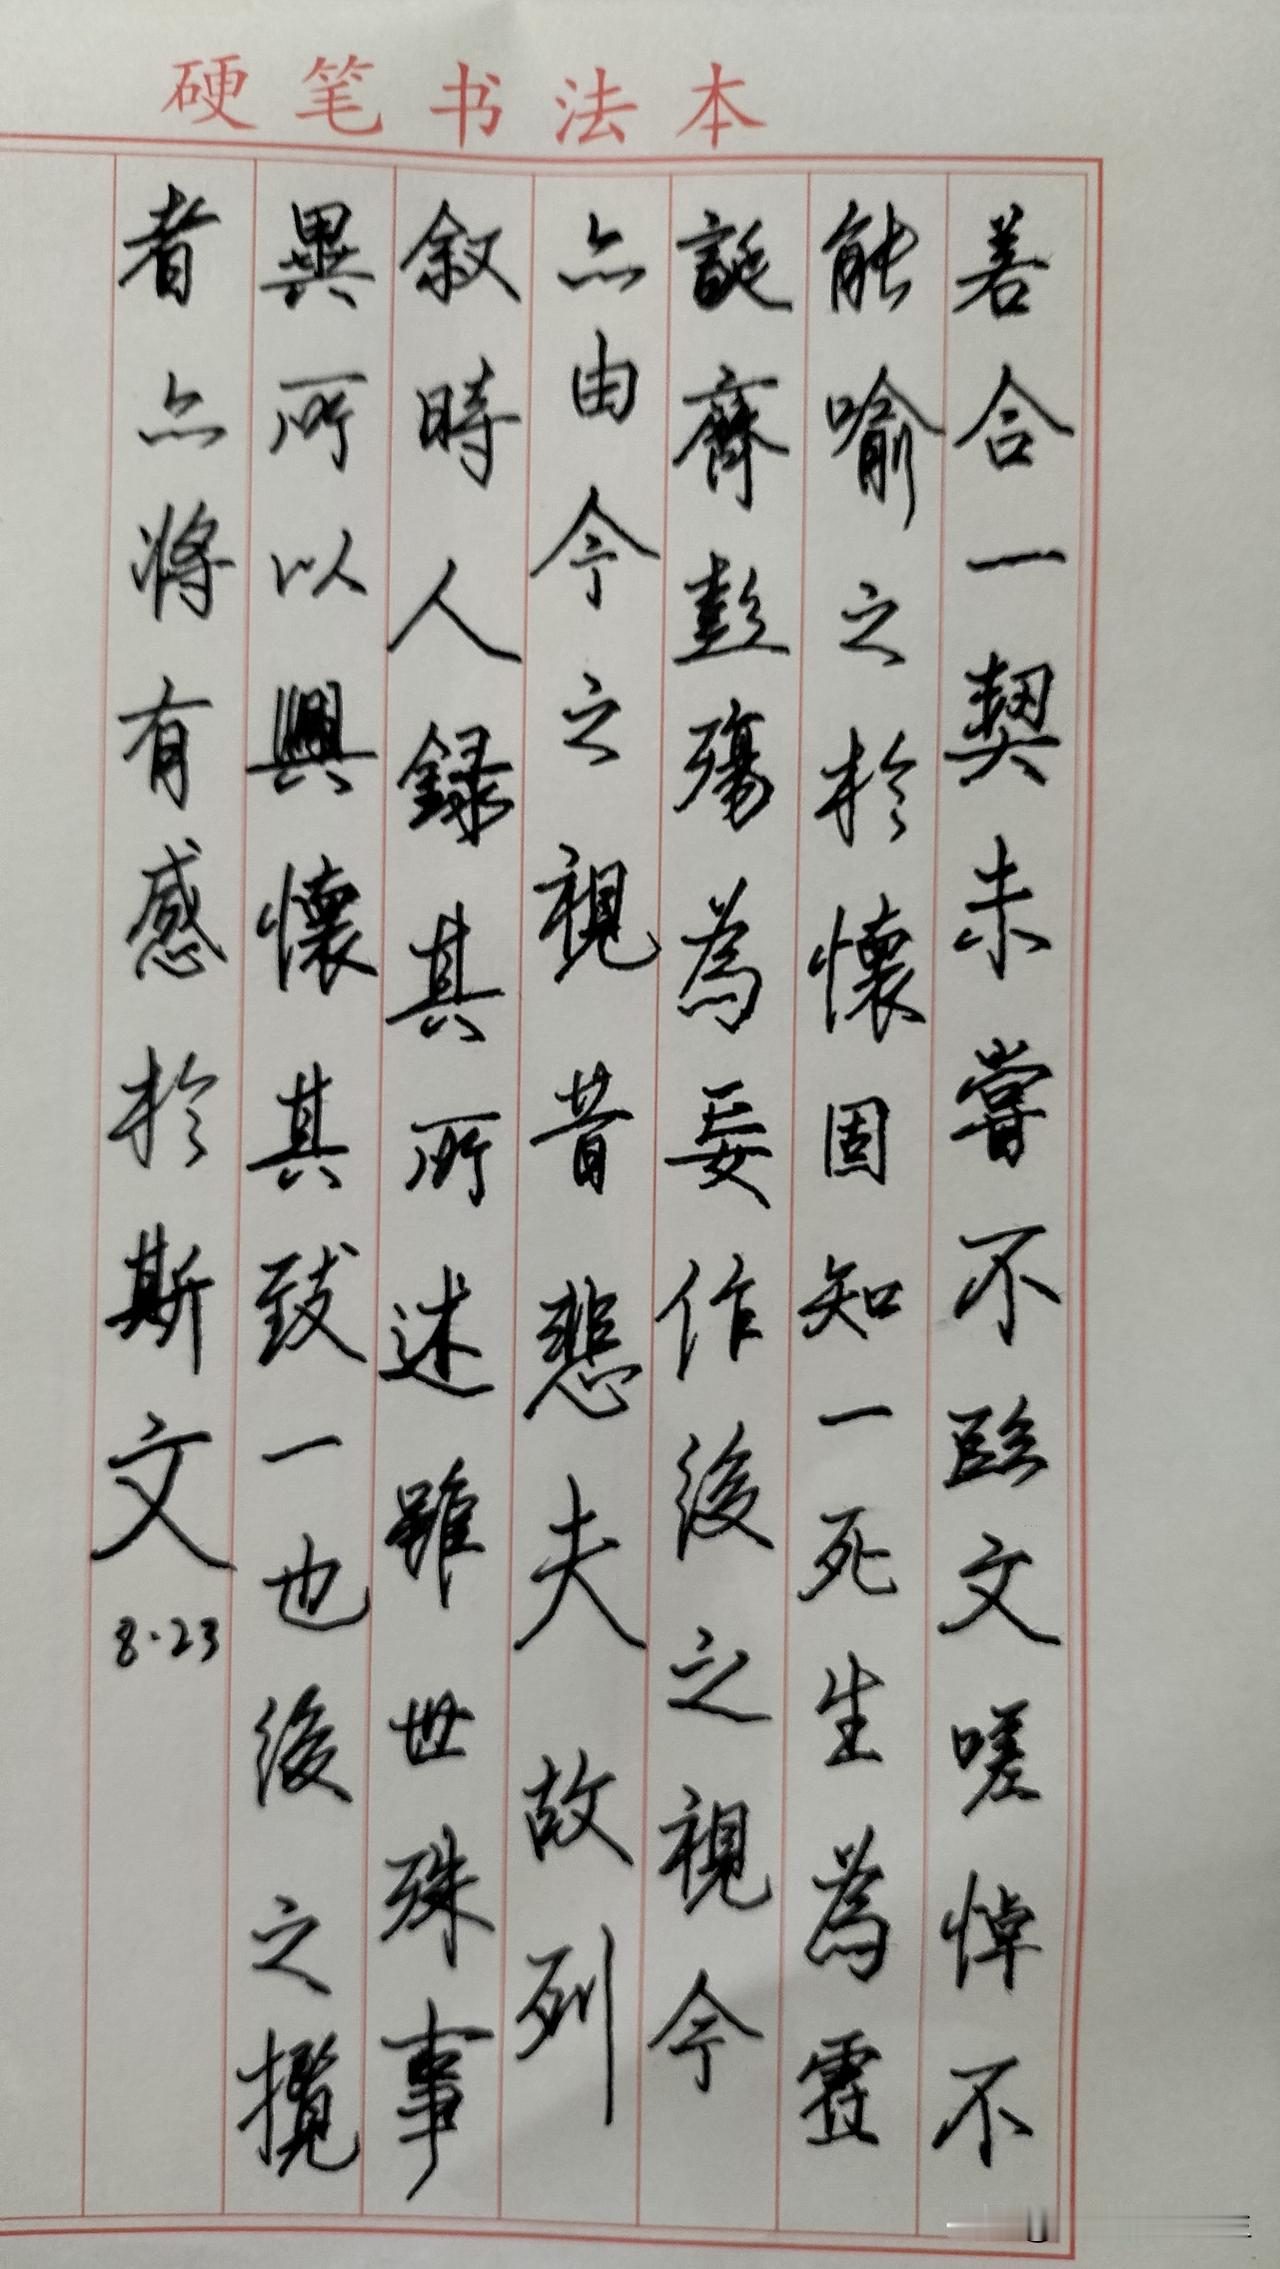 硬笔书法本
若合一契未嘗不臨文嗟悼不
能喻之於懷固知一死生為虛
誕齊彭殤為妄作後之視今
亦由今之視昔悲夫故列
叙時人録其所述雖世殊事
異所以興懷其致一也後之攬
者亦將有感於斯文
8·23